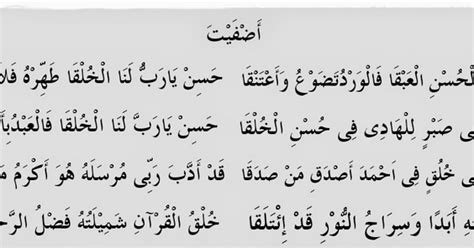 أَضْفَيْتَ
لْحُسْنِ الْعَبْقَا فَالْوَرْدُتَضَوْعُ وَأَعْتَنْقَا حَسِنْ يَارَبُّ لَنَا الْخُلْقَا طَهِّرْهُ
صَبْرٍ لِلْهَادِى فِى حُسْنِ الْخُلْقَا حَسِنْ يَارَبَّ لَنَا الْخُلْقَا
خُلُقٍ فِى اَحْمَدَ أَصْدَقِ مَنْ صَدَقَا قَدْ أَدَّبَ رَبِّى مُرْسَلَهُ هُوَ أَكْرَمُ
أَبَدًا وَسِرَاجُ النُّوْرِ قَدْ إِئْتَلَقَا خُلْقُ الْقُرْآنِ شَمِيْلَتُهُ فَضْلُ